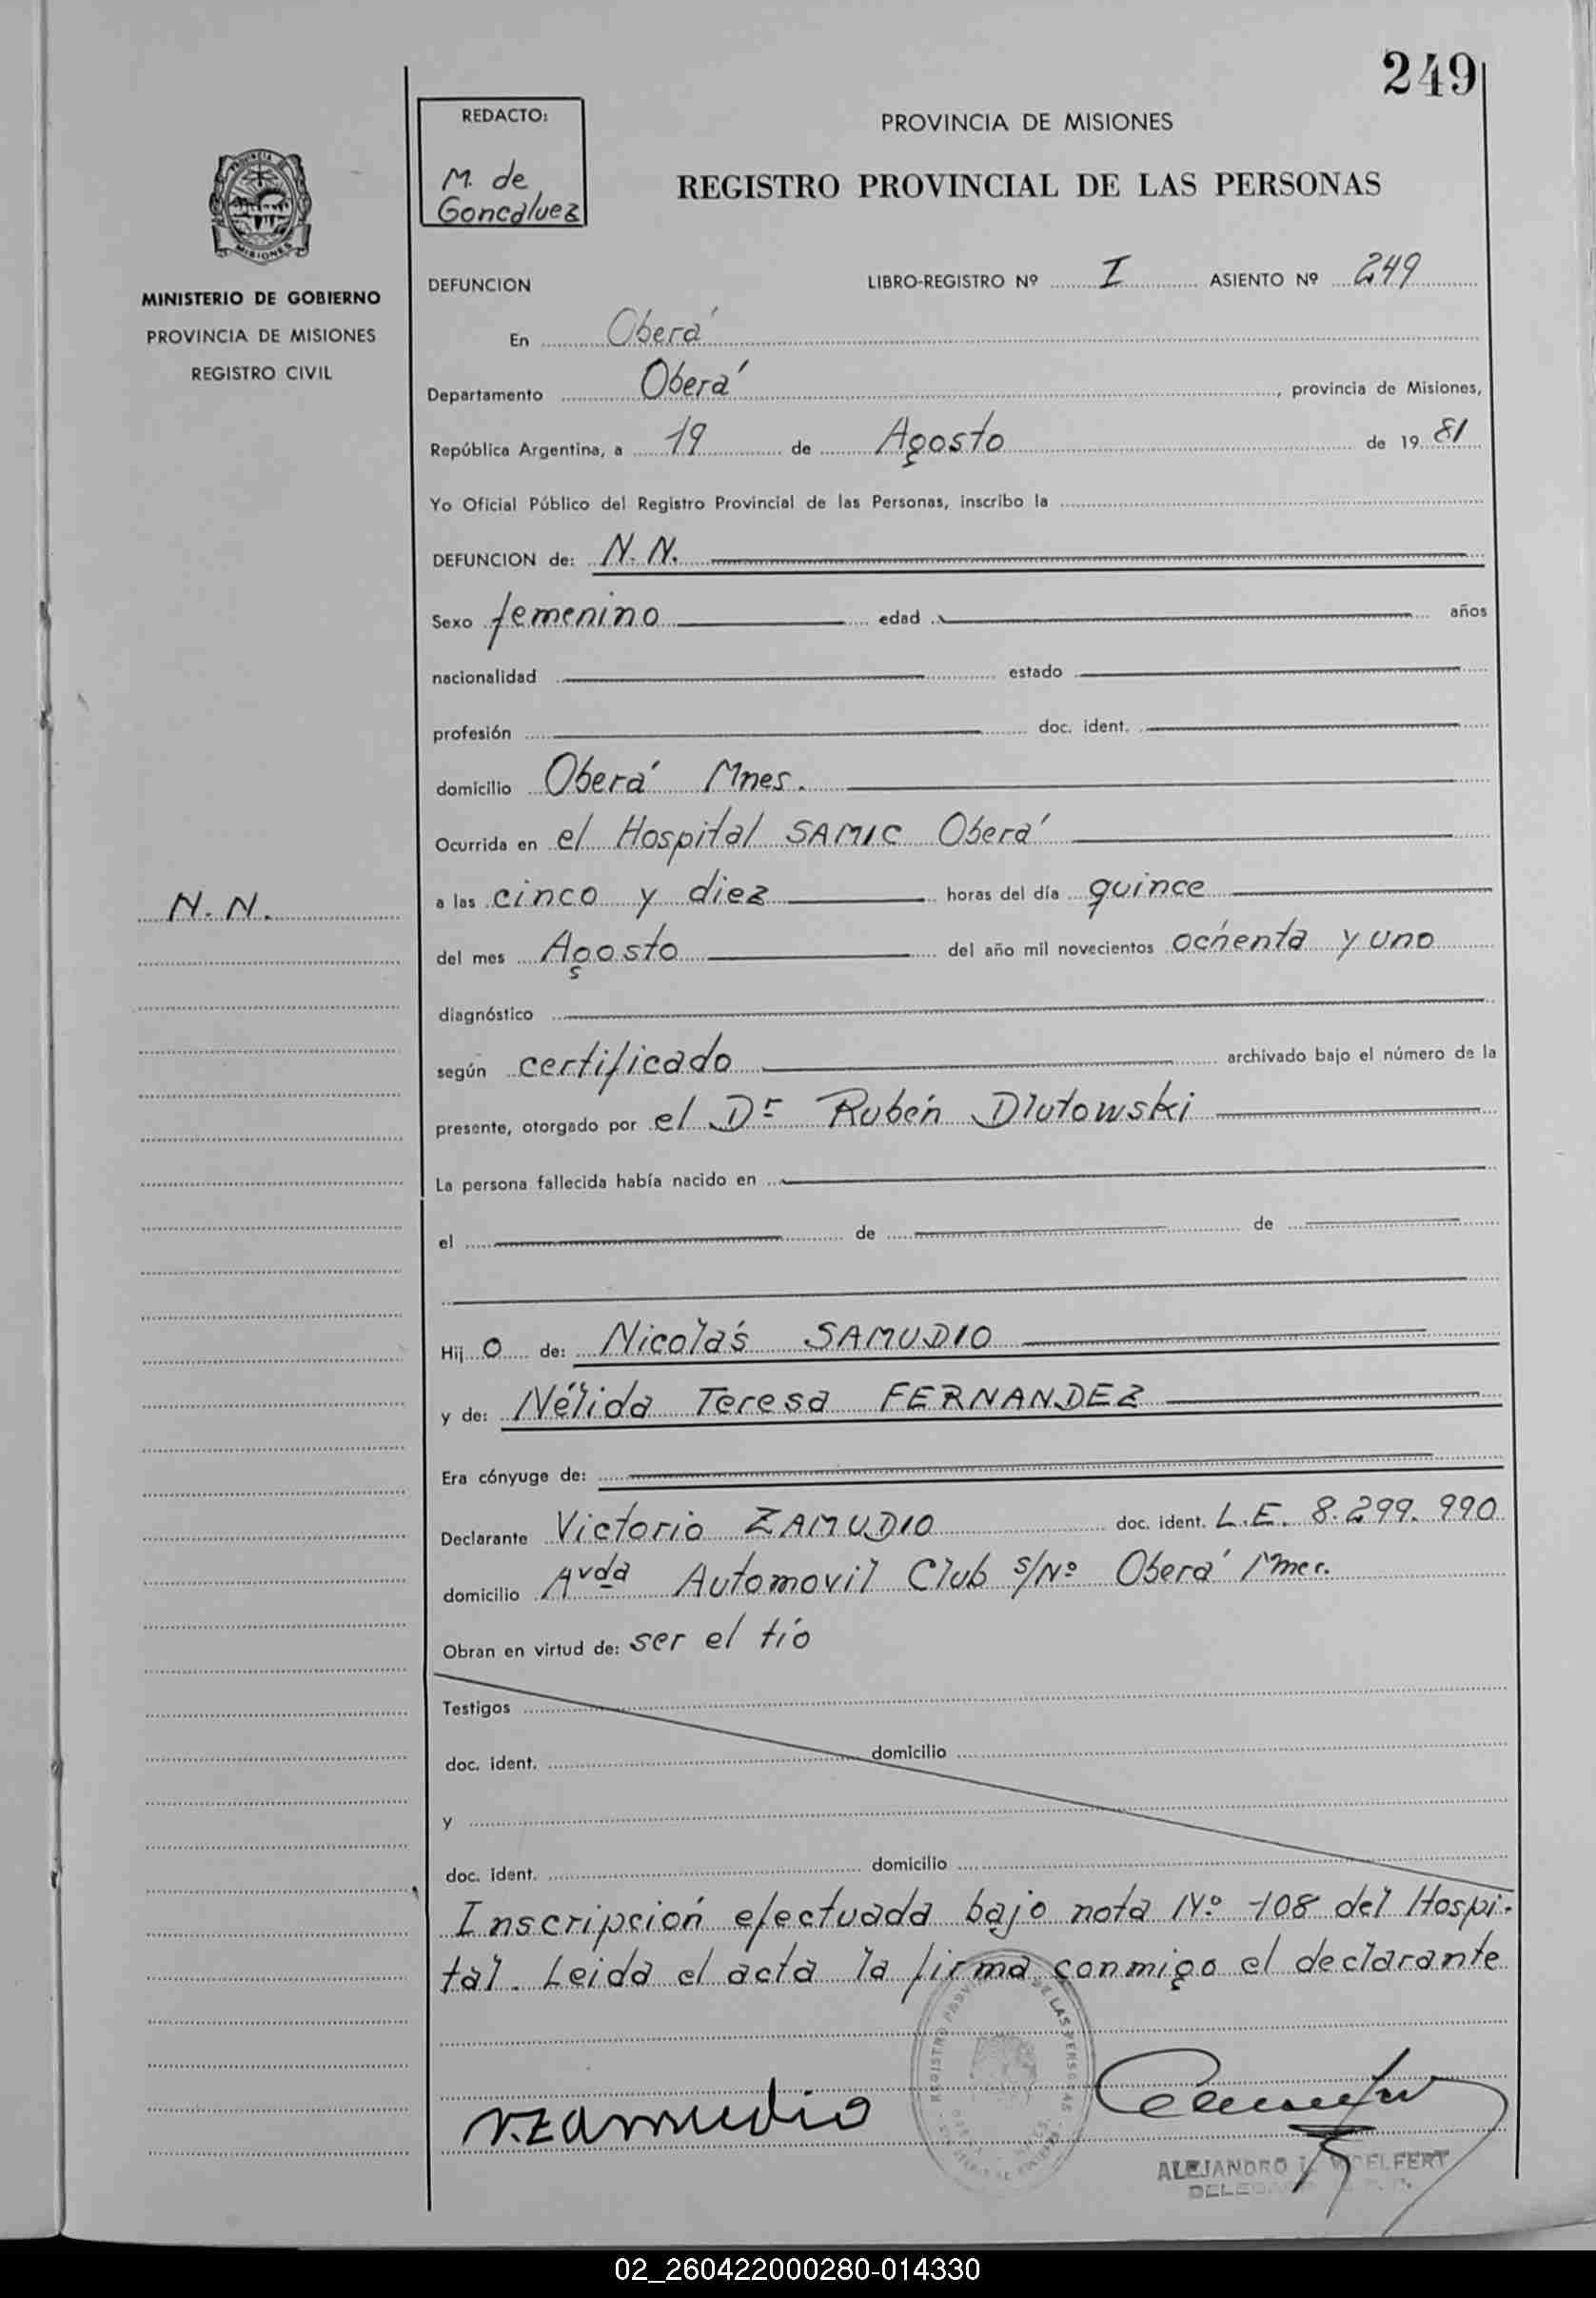 249
REDACTO:
M. de
Goncalvez
PROVINCIA DE MISIONES
REGISTRO PROVINCIAL DE LAS PERSONAS
MISIONES
MINISTERIO DE GOBIERNO
PROVINCIA DE MISIONES
REGISTRO CIVIL
DEFUNCION LIBRO-REGISTRO Nº I ASIENTO Nº 249
En Oberá
Departamento Oberá, provincia de Misiones,
República Argentina, a 19 de Agosto de 1981
Yo Oficial Público del Registro Provincial de las Personas, inscribo la
DEFUNCION de: N.N.
Sexo femenino edad años
nacionalidad estado
profesión doc. ident.
domicilio Oberá Mnes.
Ocurrida en el Hospital SAMIC Oberá
N.N.
a las cinco y diez horas del día quince
del mes Agosto del año mil novecientos ochenta y uno
diagnóstico
según certificado archivado bajo el número de la
presente, otorgado por el Dr Rubén Dlutowski
La persona fallecida había nacido en
el de de
Hij o de: Nicolás SAMUDIO
y de: Nélida Teresa FERNANDEZ
Era cónyuge de:
Declarante Victorio ZAMUDIO doc. ident. L.E. 8.299.990
domicilio Avda Automovil Club s/Nº Oberá Mnes.
Obran en virtud de: ser el tío
Testigos
doc. ident. domicilio
y
doc. ident. domicilio
Inscripción efectuada bajo nota Nº 108 del Hospi-
tal. Leida el acta la firma conmigo el declarante
DE LAS PERSONAS
V. Zamudio
ALEJANDRO
02_260422000280-014330